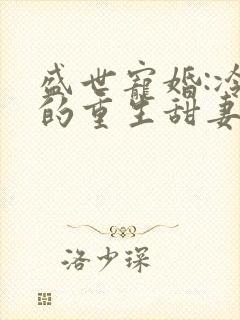 盛世寵婚:冷
的重生甜妻
洛少琛